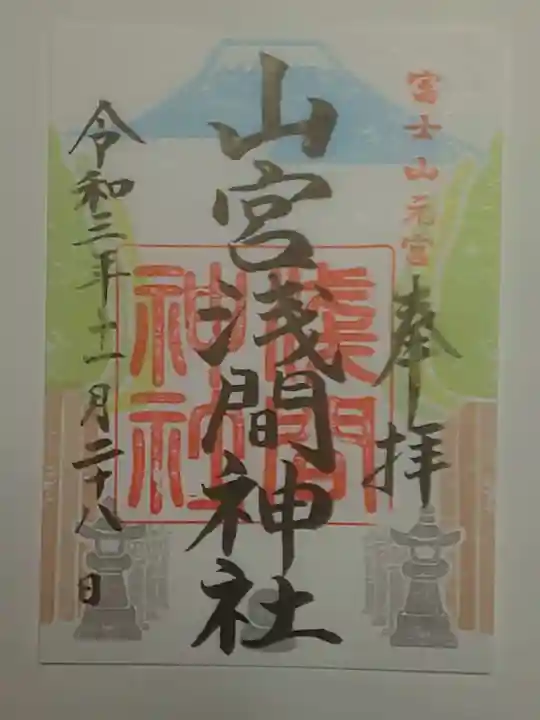 富士山元宮
奉拝
山宮浅間神社
浅間
神社
令和三年十一月二十八日